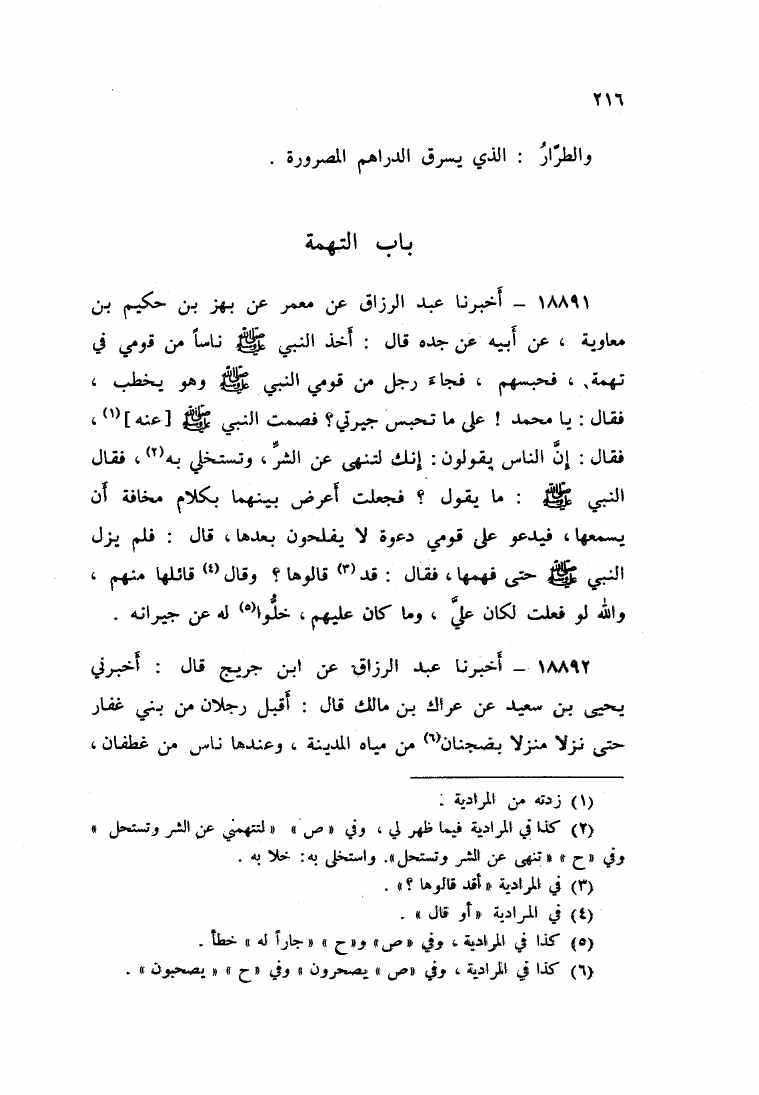 ٢١٦
والطرَّارُ : الذي يسرق الدراهم المصرورة .
باب التهمة
١٨٨٩١ – أخبرنا عبد الرزاق عن معمر عن بهز بن حكيم بن
معاوية ، عن أبيه عن جده قال : أخذ النبي ﷺ ناساً من قومي في
تهمة ، فحبسهم ، فجاء رجل من قومي النبي ﷺ وهو يخطب ،
فقال : يا محمد ! على ما تحبس جيرتي؟ فصمت النبي ﷺ [عنه](١) ،
فقال : إنَّ الناس يقولون : إنك لتنهى عن الشرِّ ، وتستخلي به(٢) ، فقال
النبي ﷺ : ما يقول ؟ فجعلت أعرض بينهما بكلام مخافة أن
يسمعها ، فيدعو على قومي دعوة لا يفلحون بعدها ، قال : فلم يزل
النبي ﷺ حتى فهمها ، فقال : قد(٣) قالوها ؟ وقال(٤) قائلها منهم ،
والله لو فعلت لكان عليَّ ، وما كان عليهم ، خلُّوا(٥) له عن جيرانه .
١٨٨٩٢ – أخبرنا عبد الرزاق عن ابن جريج قال : أخبرني
يحيى بن سعيد عن عراك بن مالك قال : أقبل رجلان من بني غفار
حتى نزلا منزلا بضجنان(٦) من مياه المدينة ، وعندها ناس من غطفان ،
(١) زدته من المرادية .
(٢) كذا في المرادية فيما ظهر لي ، وفي «ص» «لتتهمني عن الشر وتستحل»
وفي «ح» «تنهى عن الشر وتستحل». واستخلى به : خلا به .
(٣) في المرادية «أقد قالوها ؟» .
(٤) في المرادية «أو قال» .
(٥) كذا في المرادية ، وفي «ص» و«ح» «جاراً له» خطأ .
(٦) كذا في المرادية ، وفي «ص» يصحرون» وفي «ح» «يصحبون» .